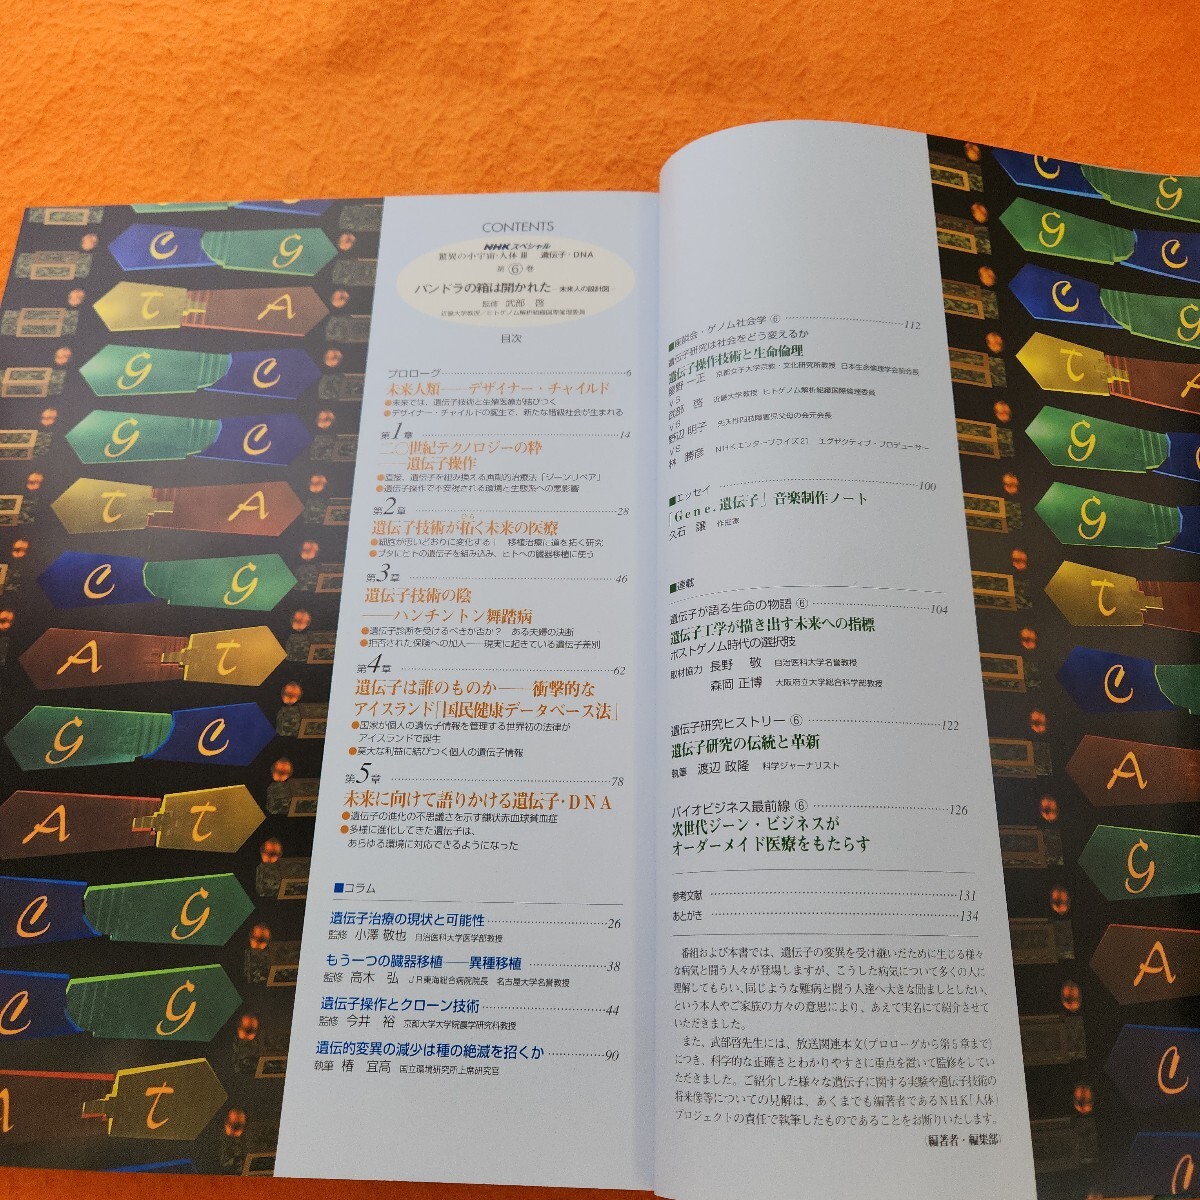 CONTENTS
NHKスペシャル
驚異の小宇宙・人体Ⅲ 遺伝子・DNA
第⑥巻
パンドラの箱は開かれた 未来人の設計図
監修 武部 啓
近畿大学教授/ヒトゲノム解析機構国際倫理委員
目次
プロローグ 6
未来人類――デザイナー・チャイルド
●未来では、遺伝子技術と生殖医療が結びつく
●デザイナー・チャイルドの誕生で、新たな階級社会が生まれる
第1章 14
二〇世紀テクノロジーの粋
――遺伝子操作
●直接、遺伝子を組み換える画期的治療法「ジーンリペア」
●遺伝子操作で不安視される環境と生態系への悪影響
第2章 28
遺伝子技術が拓く未来の医療
●細胞が思いどおりに変化する! 移植治療に道を拓く研究
●ブタにヒトの遺伝子を組み込み、ヒトへの臓器移植に使う
第3章 46
遺伝子技術の陰
――ハンチントン舞踏病
●遺伝子診断を受けるべきか否か? ある夫婦の決断
●拒否された保険への加入――現実に起きている遺伝子差別
第4章 62
遺伝子は誰のものか――衝撃的な
アイスランド「国民健康データベース法」
●国家が個人の遺伝子情報を管理する世界初の法律が
アイスランドで誕生
●莫大な利益に結びつく個人の遺伝子情報
第5章 78
未来に向けて語りかける遺伝子・DNA
●遺伝子の進化の不思議さを示す鎌状赤血球貧血症
●多様に進化してきた遺伝子は、
あらゆる環境に対応できるようになった
■コラム
遺伝子治療の現状と可能性 26
監修 小澤 敬也 自治医科大学医学部教授
もう一つの臓器移植――異種移植 38
監修 高木 弘 JR東海総合病院院長 名古屋大学名誉教授
遺伝子操作とクローン技術 44
監修 今井 裕 京都大学大学院農学研究科教授
遺伝的変異の減少は種の絶滅を招くか 90
執筆 椿 宜高 国立環境研究所上席研究官
■座談会・ゲノム社会学⑥ 112
遺伝子研究は社会をどう変えるか
遺伝子操作技術と生命倫理
星野 一正 京都女子大学宗教・文化研究所教授 日本生命倫理学会前会長
VS
武部 啓 近畿大学教授 ヒトゲノム解析機構国際倫理委員
VS
野辺 明子 先天性四肢障害児父母の会元会長
VS
林 勝彦 NHKエンタープライズ21 エグゼクティブ・プロデューサー
■エッセイ 100
「Gene.遺伝子」音楽制作ノート
久石 譲 作曲家
■連載
遺伝子が語る生命の物語⑥ 104
遺伝子工学が描き出す未来への指標
ポストゲノム時代の選択肢
取材協力 長野 敬 自治医科大学名誉教授
森岡 正博 大阪府立大学総合科学部教授
遺伝子研究ヒストリー⑥ 122
遺伝子研究の伝統と革新
執筆 渡辺 政隆 科学ジャーナリスト
バイオビジネス最前線⑥ 126
次世代ジーン・ビジネスが
オーダーメイド医療をもたらす
参考文献 131
あとがき 134
番組および本書では、遺伝子の変異を受け継いだために生じる様々
な病気と闘う人々が登場しますが、こうした病気について多くの人に
理解してもらい、同じような難病と闘う人達へ大きな励ましとしたい、
という本人やご家族の方々の意思により、あえて実名にて紹介させて
いただきました。
また、武部啓先生には、放送関連本文(プロローグから第5章まで)
につき、科学的な正確さとわかりやすさに重点を置いて監修をしてい
ただきました。ご紹介した様々な遺伝子に関する実験や遺伝子技術の
将来像等についての見解は、あくまでも編著者であるNHK「人体」
プロジェクトの責任で執筆したものであることをお断りいたします。
(編著者・編集部)